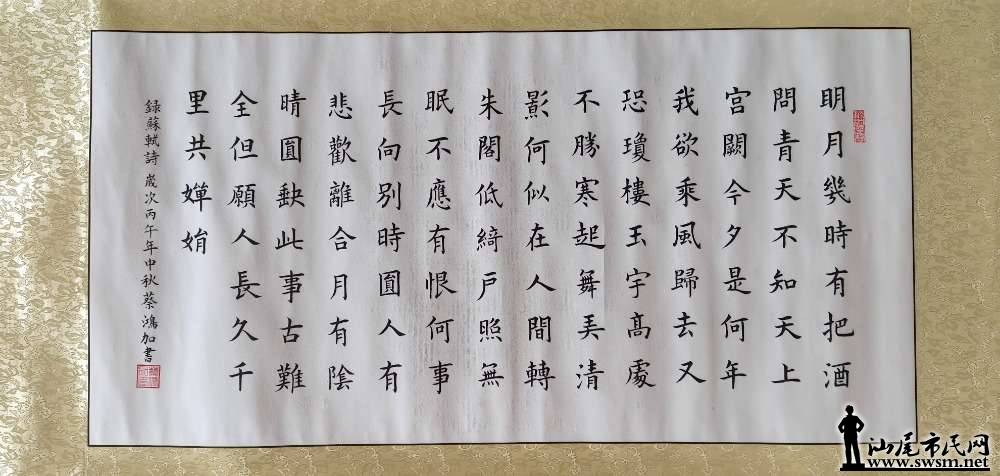 明月幾時有把酒
問青天不知天上
宮闕今夕是何年
我欲乘風歸去又
恐瓊樓玉宇高處
不勝寒起舞弄清
影何似在人間轉
朱閣低綺戶照無
眠不應有恨何事
長向別時圓人有
悲歡離合月有陰
晴圓缺此事古難
全但願人長久千
里共嬋娟
録蘇軾詩 歲次丙午年中秋蔡鴻加書
汕尾市民网
www.swsm.net